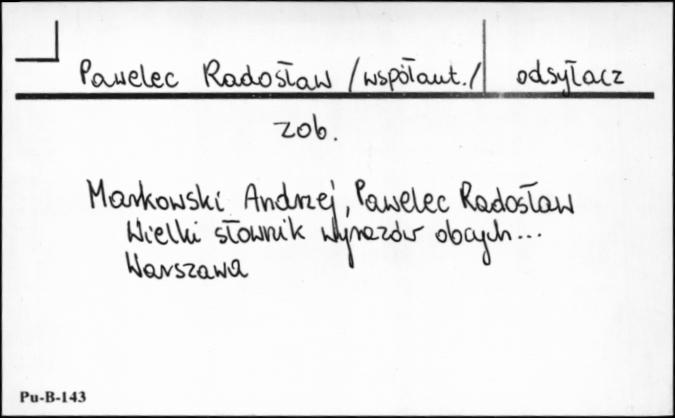 Pawelec Radosław /współaut./ odsyłacz
zob.
Markowski Andrzej, Pawelec Radosław
Wielki słownik wyrazów obcych...
Warszawa
Pu-B-143